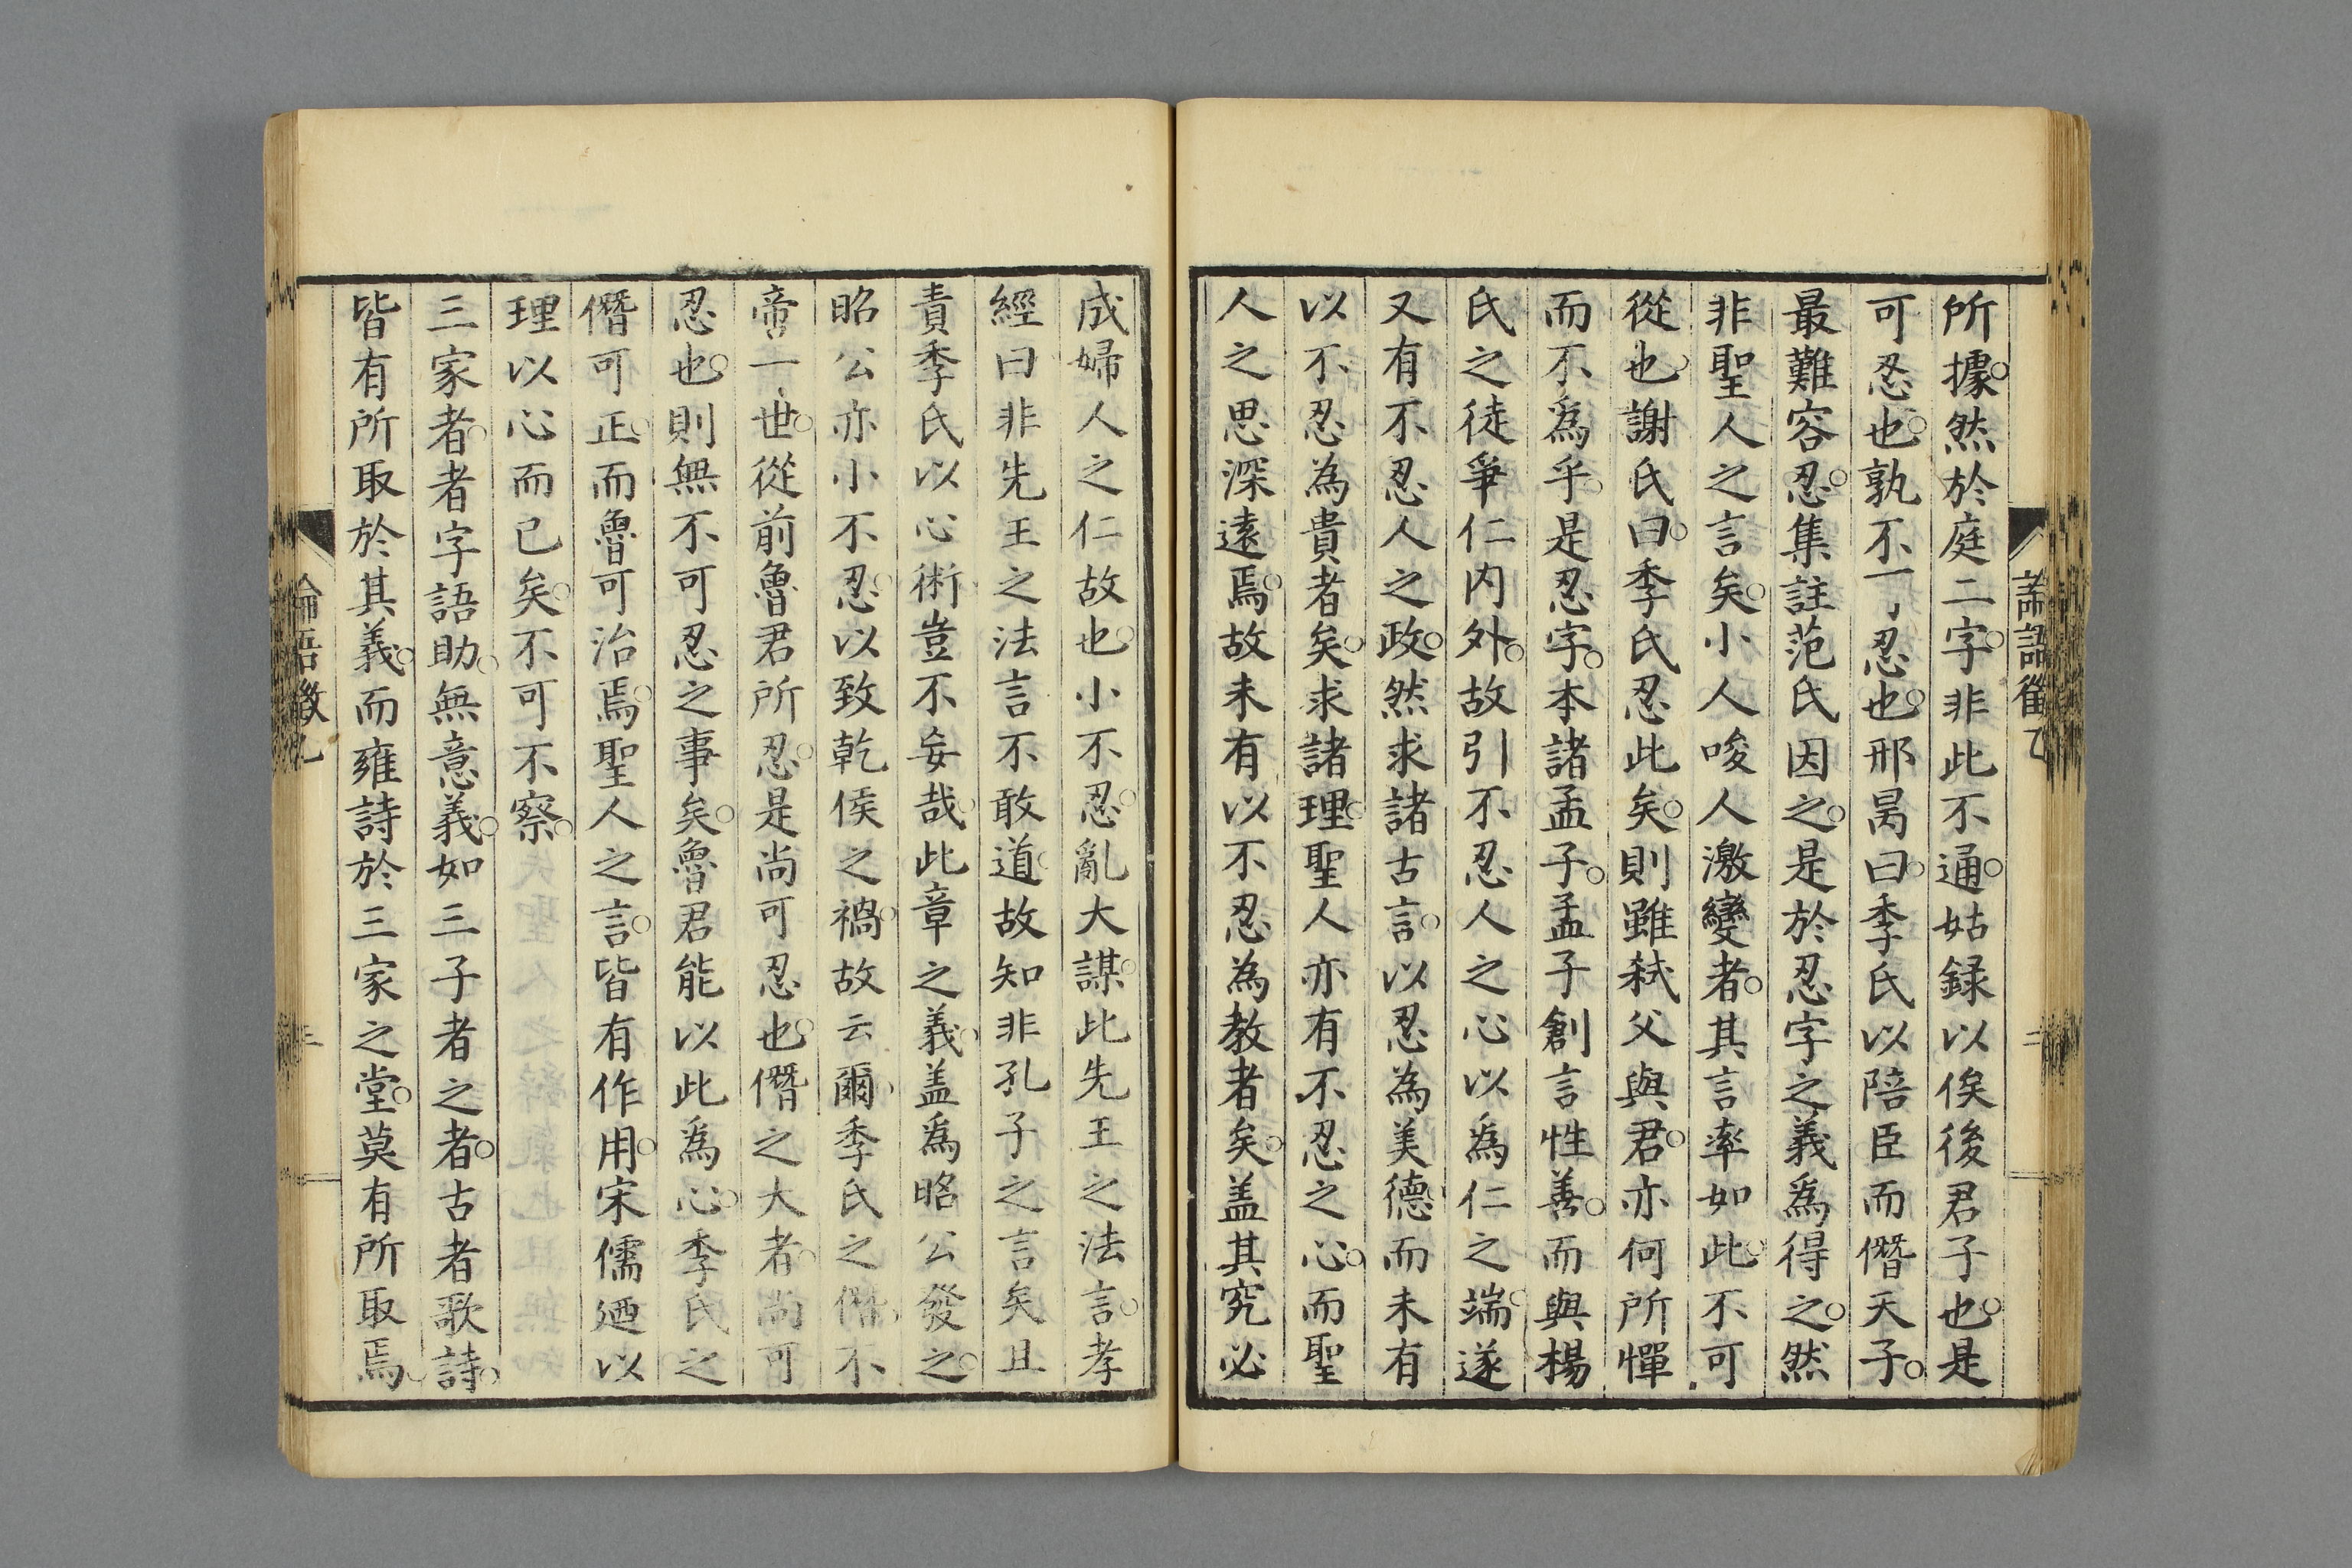 論語徵乙
二
所據然於庭二字非此不通姑録以俟後君子也是
可忍也孰不可忍也邢昺曰季氏以陪臣而僭天子
最難容忍集註范氏因之是於忍字之義爲得之然
非聖人之言矣小人唆人激變者其言率如此不可
從也謝氏曰季氏忍此矣則雖弑父與君亦何所憚
而不爲乎是忍字本諸孟子孟子創言性善而與楊
氏之徒爭仁内外故引不忍人之心以爲仁之端遂
又有不忍人之政然求諸古言以忍為美德而未有
以不忍為貴者矣求諸理聖人亦有不忍之心而聖
人之思深遠焉故未有以不忍為教者矣盖其究必
成婦人之仁故也小不忍亂大謀此先王之法言孝
經曰非先王之法言不敢道故知非孔子之言矣且
責季氏以心術豈不妄哉此章之義盖爲昭公發之
昭公亦小不忍以致乾侯之禍故云爾季氏之僭不
啻一世從前魯君所忍是尚可忍也僭之大者尚可
忍也則無不可忍之事矣魯君能以此爲心季氏之
僭可正而魯可治焉聖人之言皆有作用宋儒廼以
理以心而已矣不可不察
三家者者字語助無意義如三子者之者古者歌詩
皆有所取於其義而雍詩於三家之堂莫有所取焉
論語徵乙
三